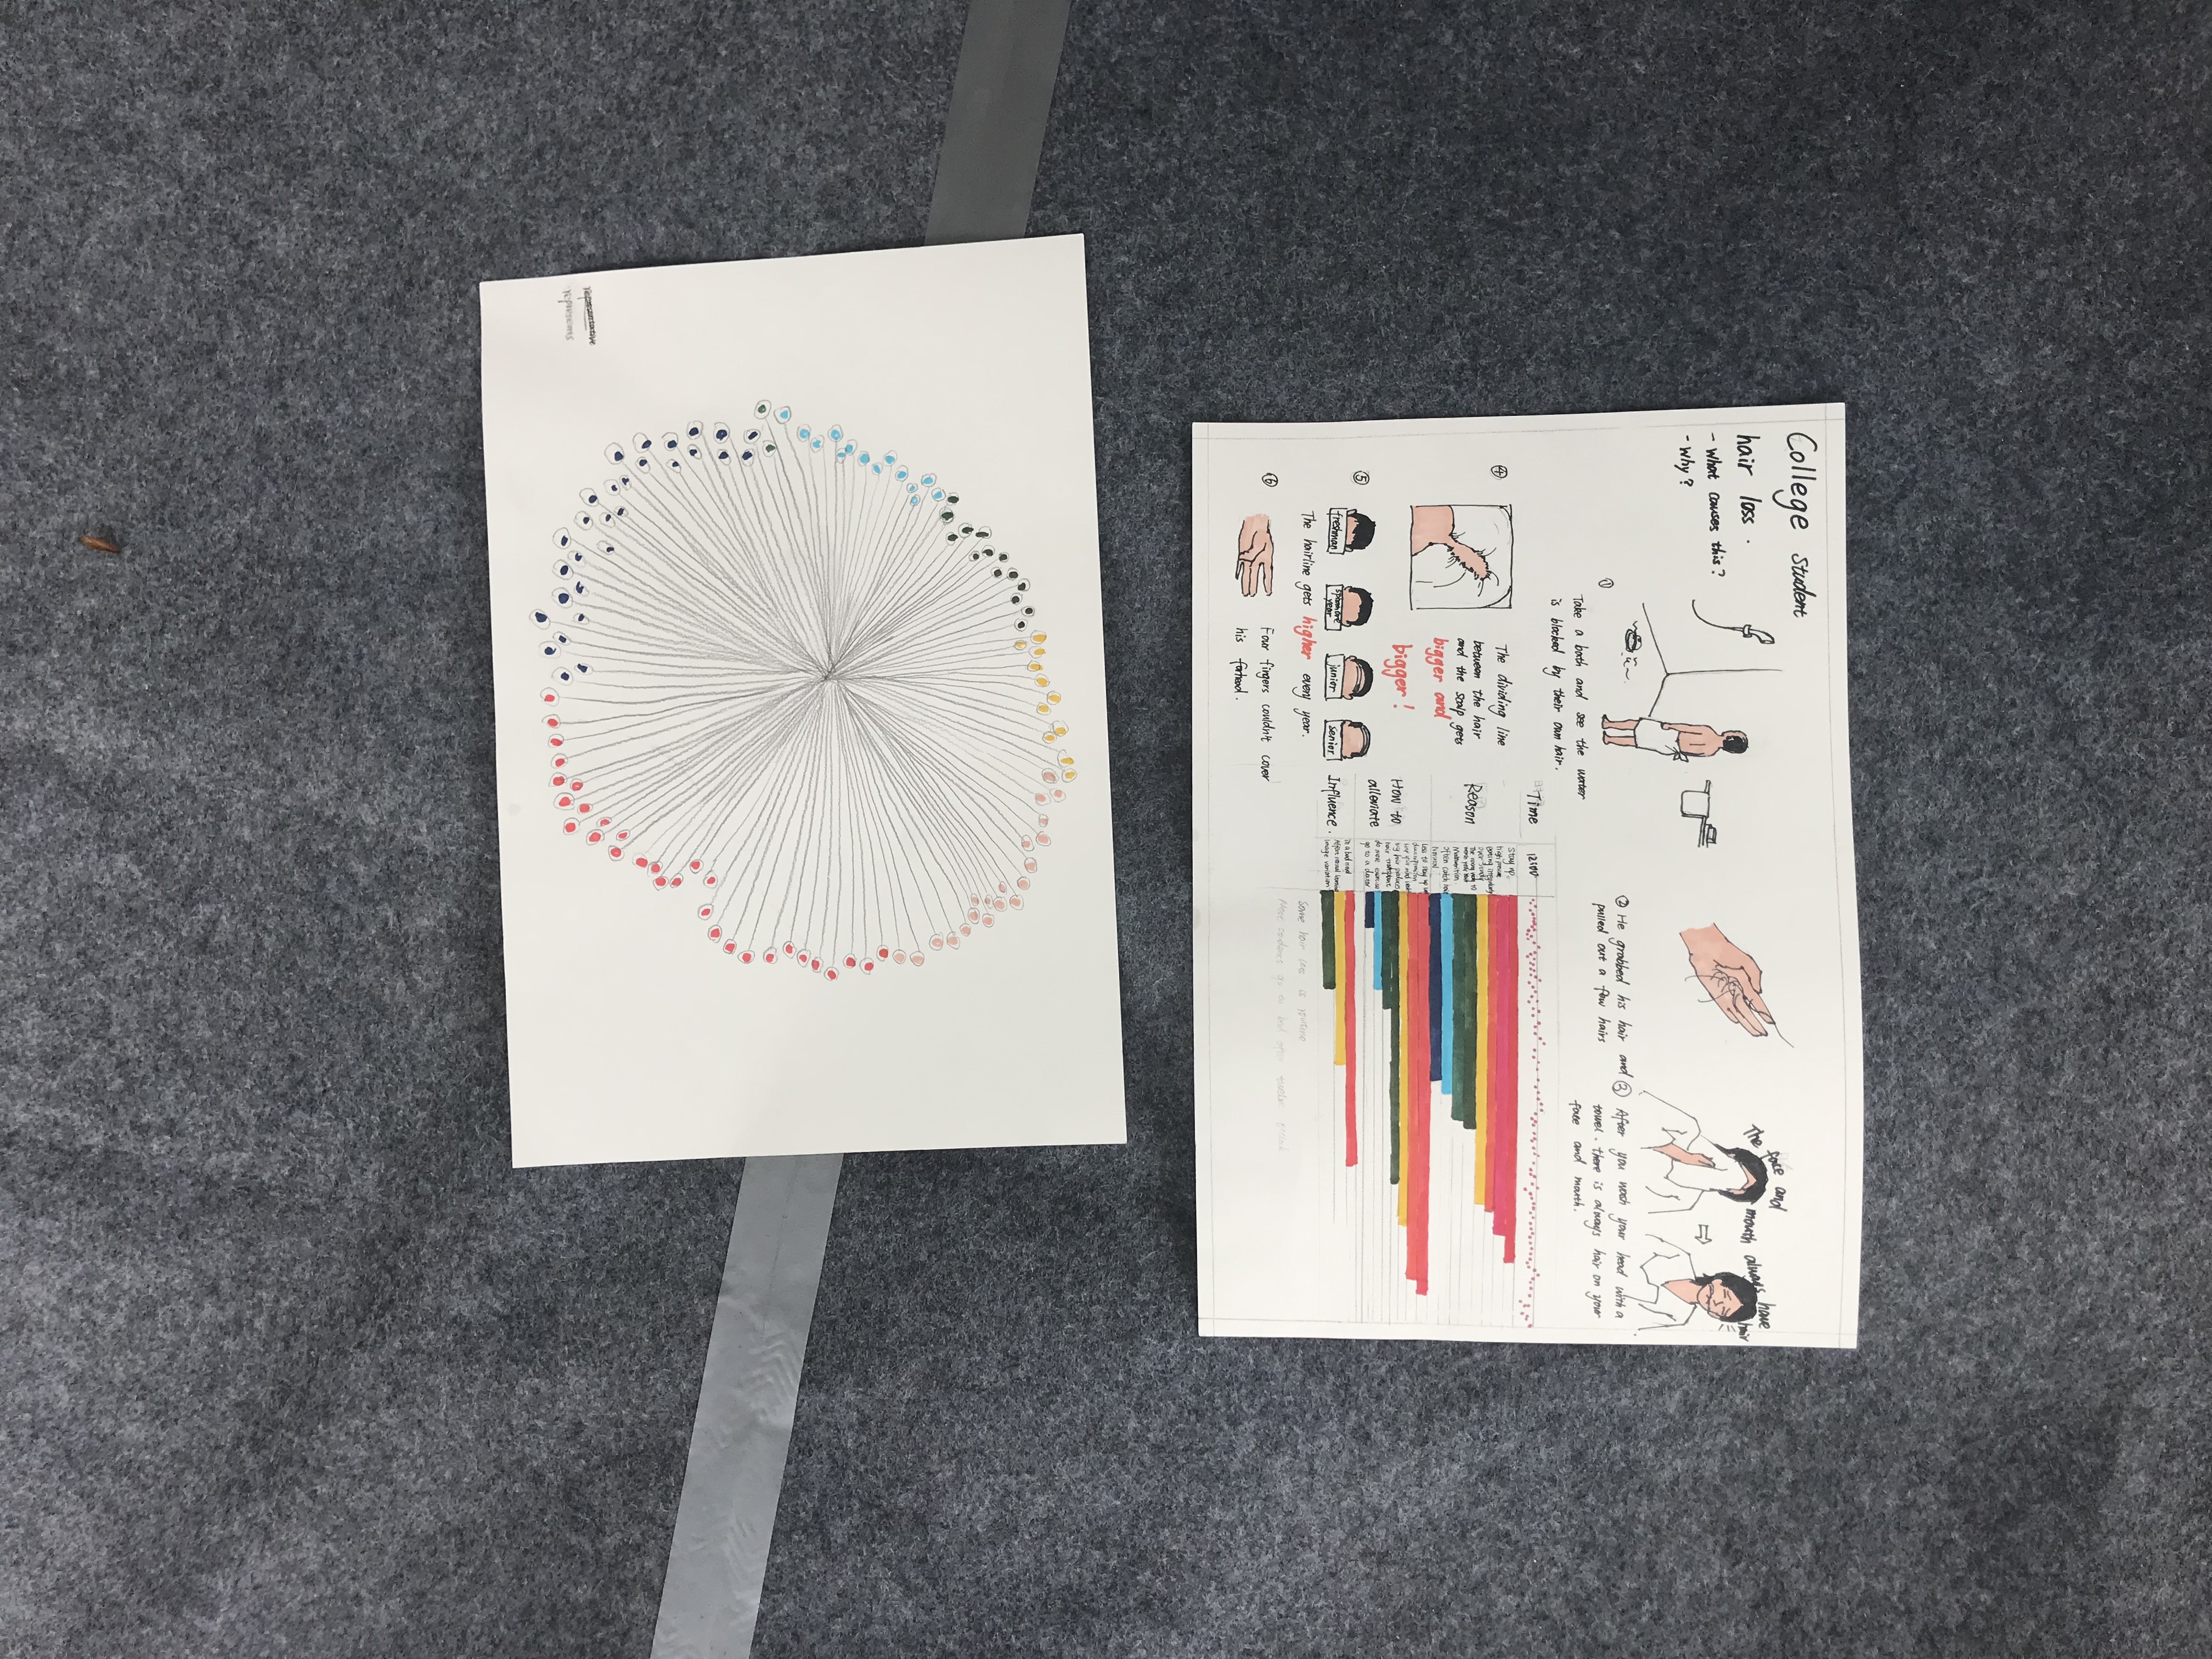 College student
hair loss.
- What causes this?
- Why?
①
Take a bath and see the water
is blocked by their own hair.
② He grabbed his hair and
pulled out a few hairs
The face and
mouth always have
hair
③ After you wash your head with a
towel. there is always hair on your
face and mouth.
④
The dividing line
between the hair
and the scalp gets
bigger and
bigger!
⑤
freshman
year
junior
senior
The hairline gets higher every year.
⑥
Four fingers couldn't cover
his forhead.
Time
12:00
Reason
Stay up
high
eating irregularly
over study
The wrong way to
Malnutrition
often catch hair
Normal
How to
alleviate
Less to stay up
hair transplant
do more exercise
go to a doctor
Influence.
In a bad mood
Affect normal learning
Image variation
Some hair loss is routine
Most students go to bed after twelve
representative
represents